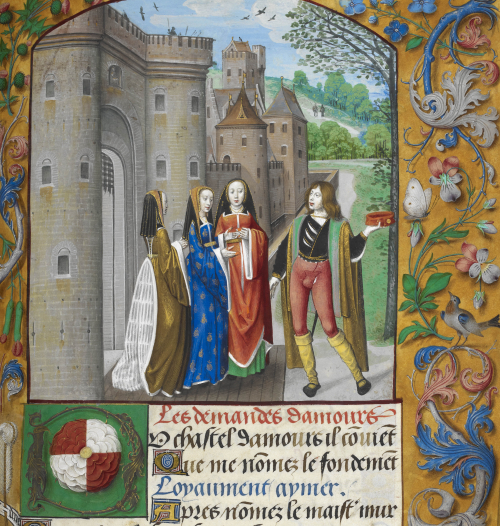 Les demandes damours
DV chastel damours il cōuiēt
Que me nōmez le fondement
Loyaument aymer.
Apres nōmez le maist mur